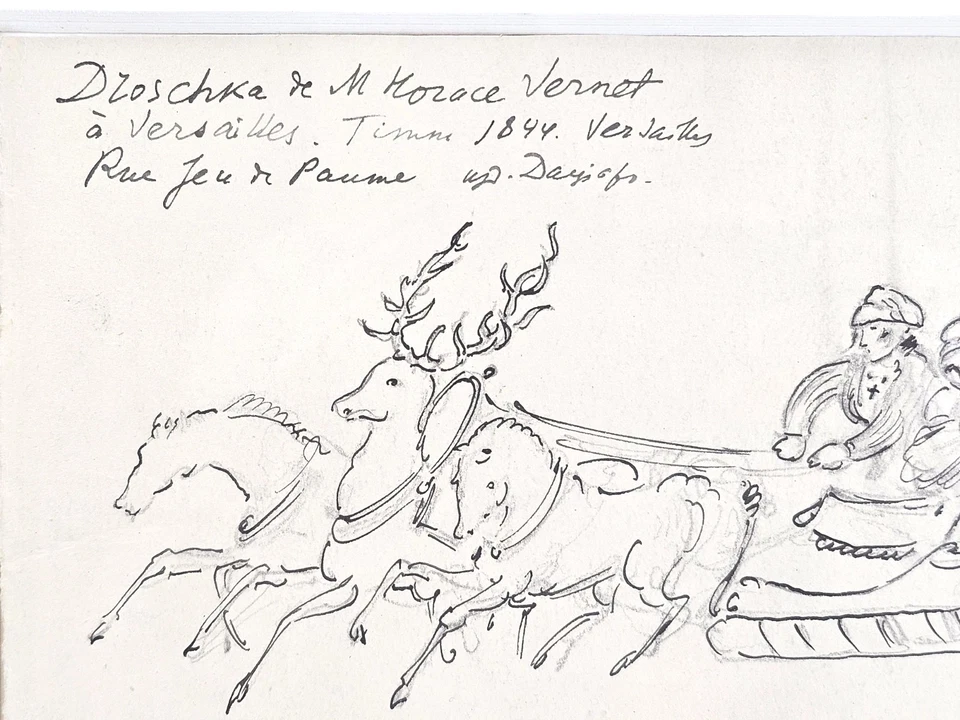 Droschka de M Horace Vernet
à Versailles. Timm 1844. Versailles
Rue Jeu de Paume